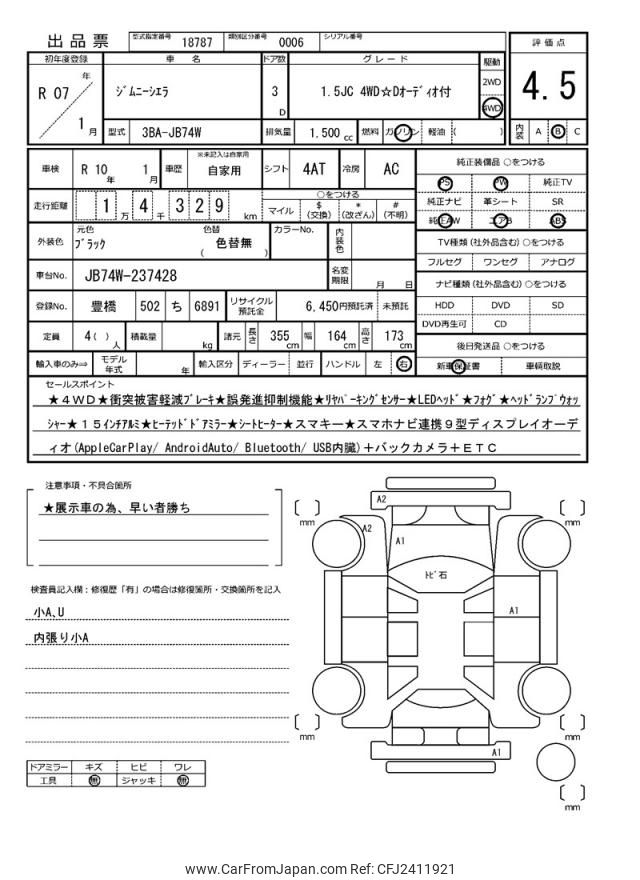 出品票 型式指定番号 18787 類別区分番号 0006 シリアル番号
評価点
4.5
初年度登録 車名 ドア数 グレード 駆動
R 07 年 1 月
ジムニーシエラ 3 D 1.5JC 4WD☆Dオーディオ付 2WD 4WD
型式 3BA-JB74W 排気量 1.500 cc 燃料 ガソリン 軽油 ( )
内装 A B C
車検 R 10 年 1 月 車歴 ※未記入は自家用 自家用 シフト 4AT 冷房 AC
走行距離 1 万 4 千 3 2 9 km
○をつける
マイル $(交換) *(改ざん) #(不明)
外装色 元色 ブラック 色替 ( 色替無 ) カラーNo. 内装色
車台No. JB74W-237428 名変期限 月 日
登録No. 豊橋 502 ち 6891 リサイクル預託金 6,450円預託済 未預託
定員 4( ) 人 積載量 kg 諸元 長さ 355 cm 幅 164 cm 高さ 173 cm
輸入車のみ⇨ モデル年式 年 輸入区分 ディーラー 並行 ハンドル 左 右
純正装備品 ○をつける
PS PW 純正TV
純正ナビ 革シート SR
純正AW エアB ABS
TV種類 (社外品含む) ○をつける
フルセグ ワンセグ アナログ
ナビ種類 (社外品含む) ○をつける
HDD DVD SD
DVD再生可 CD
後日発送品 ○をつける
新車保証書 車輌取説
セールスポイント
★4WD★衝突被害軽減ブレーキ★誤発進抑制機能★リヤパーキングセンサー★LEDヘッド★フォグ★ヘッドランプウォッ
シャー★15インチアルミ★ヒーテッドドアミラー★シートヒーター★スマキー★スマホナビ連携9型ディスプレイオーデ
ィオ(AppleCarPlay/ AndroidAuto/ Bluetooth/ USB内臓)+バックカメラ+ETC
注意事項・不具合箇所
★展示車の為、早い者勝ち
検査員記入欄:修復歴「有」の場合は修復箇所・交換箇所を記入
小A、U
内張り小A
ドアミラー キズ ヒビ ワレ
工具 無 ジャッキ 無
A2
mm
mm
A2
A1
トビ石
A1
mm
mm
A1
mm
www.CarFromJapan.com Ref: CFJ2411921